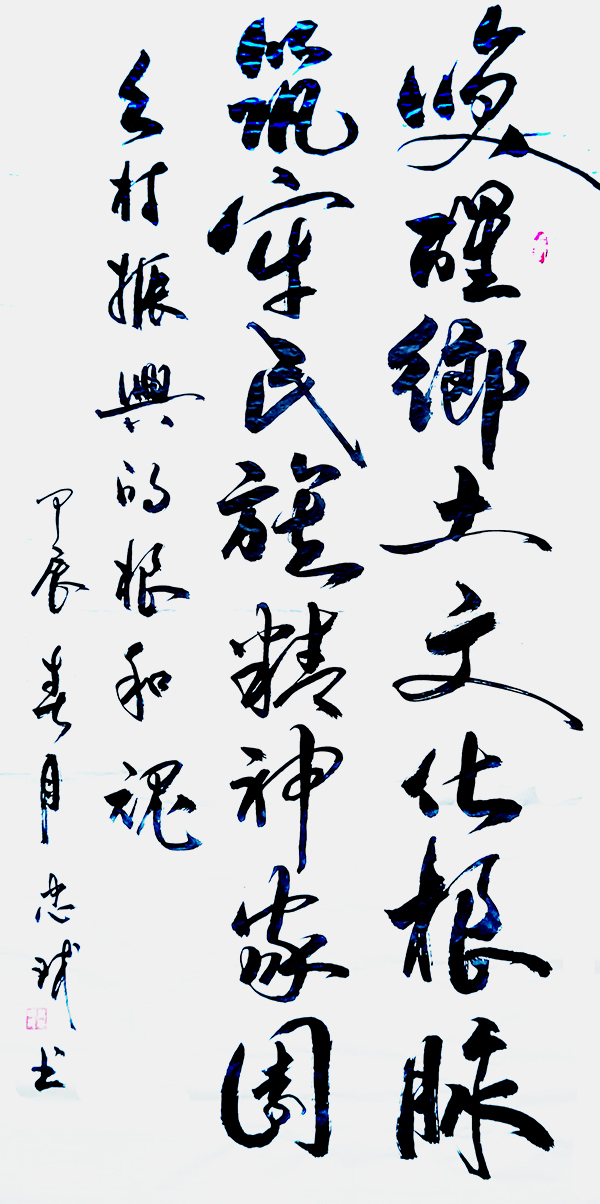 唤醒鄉土文化根脉
筑牢民族精神家園
乡村振興的根和魂
甲辰春月忠誠书